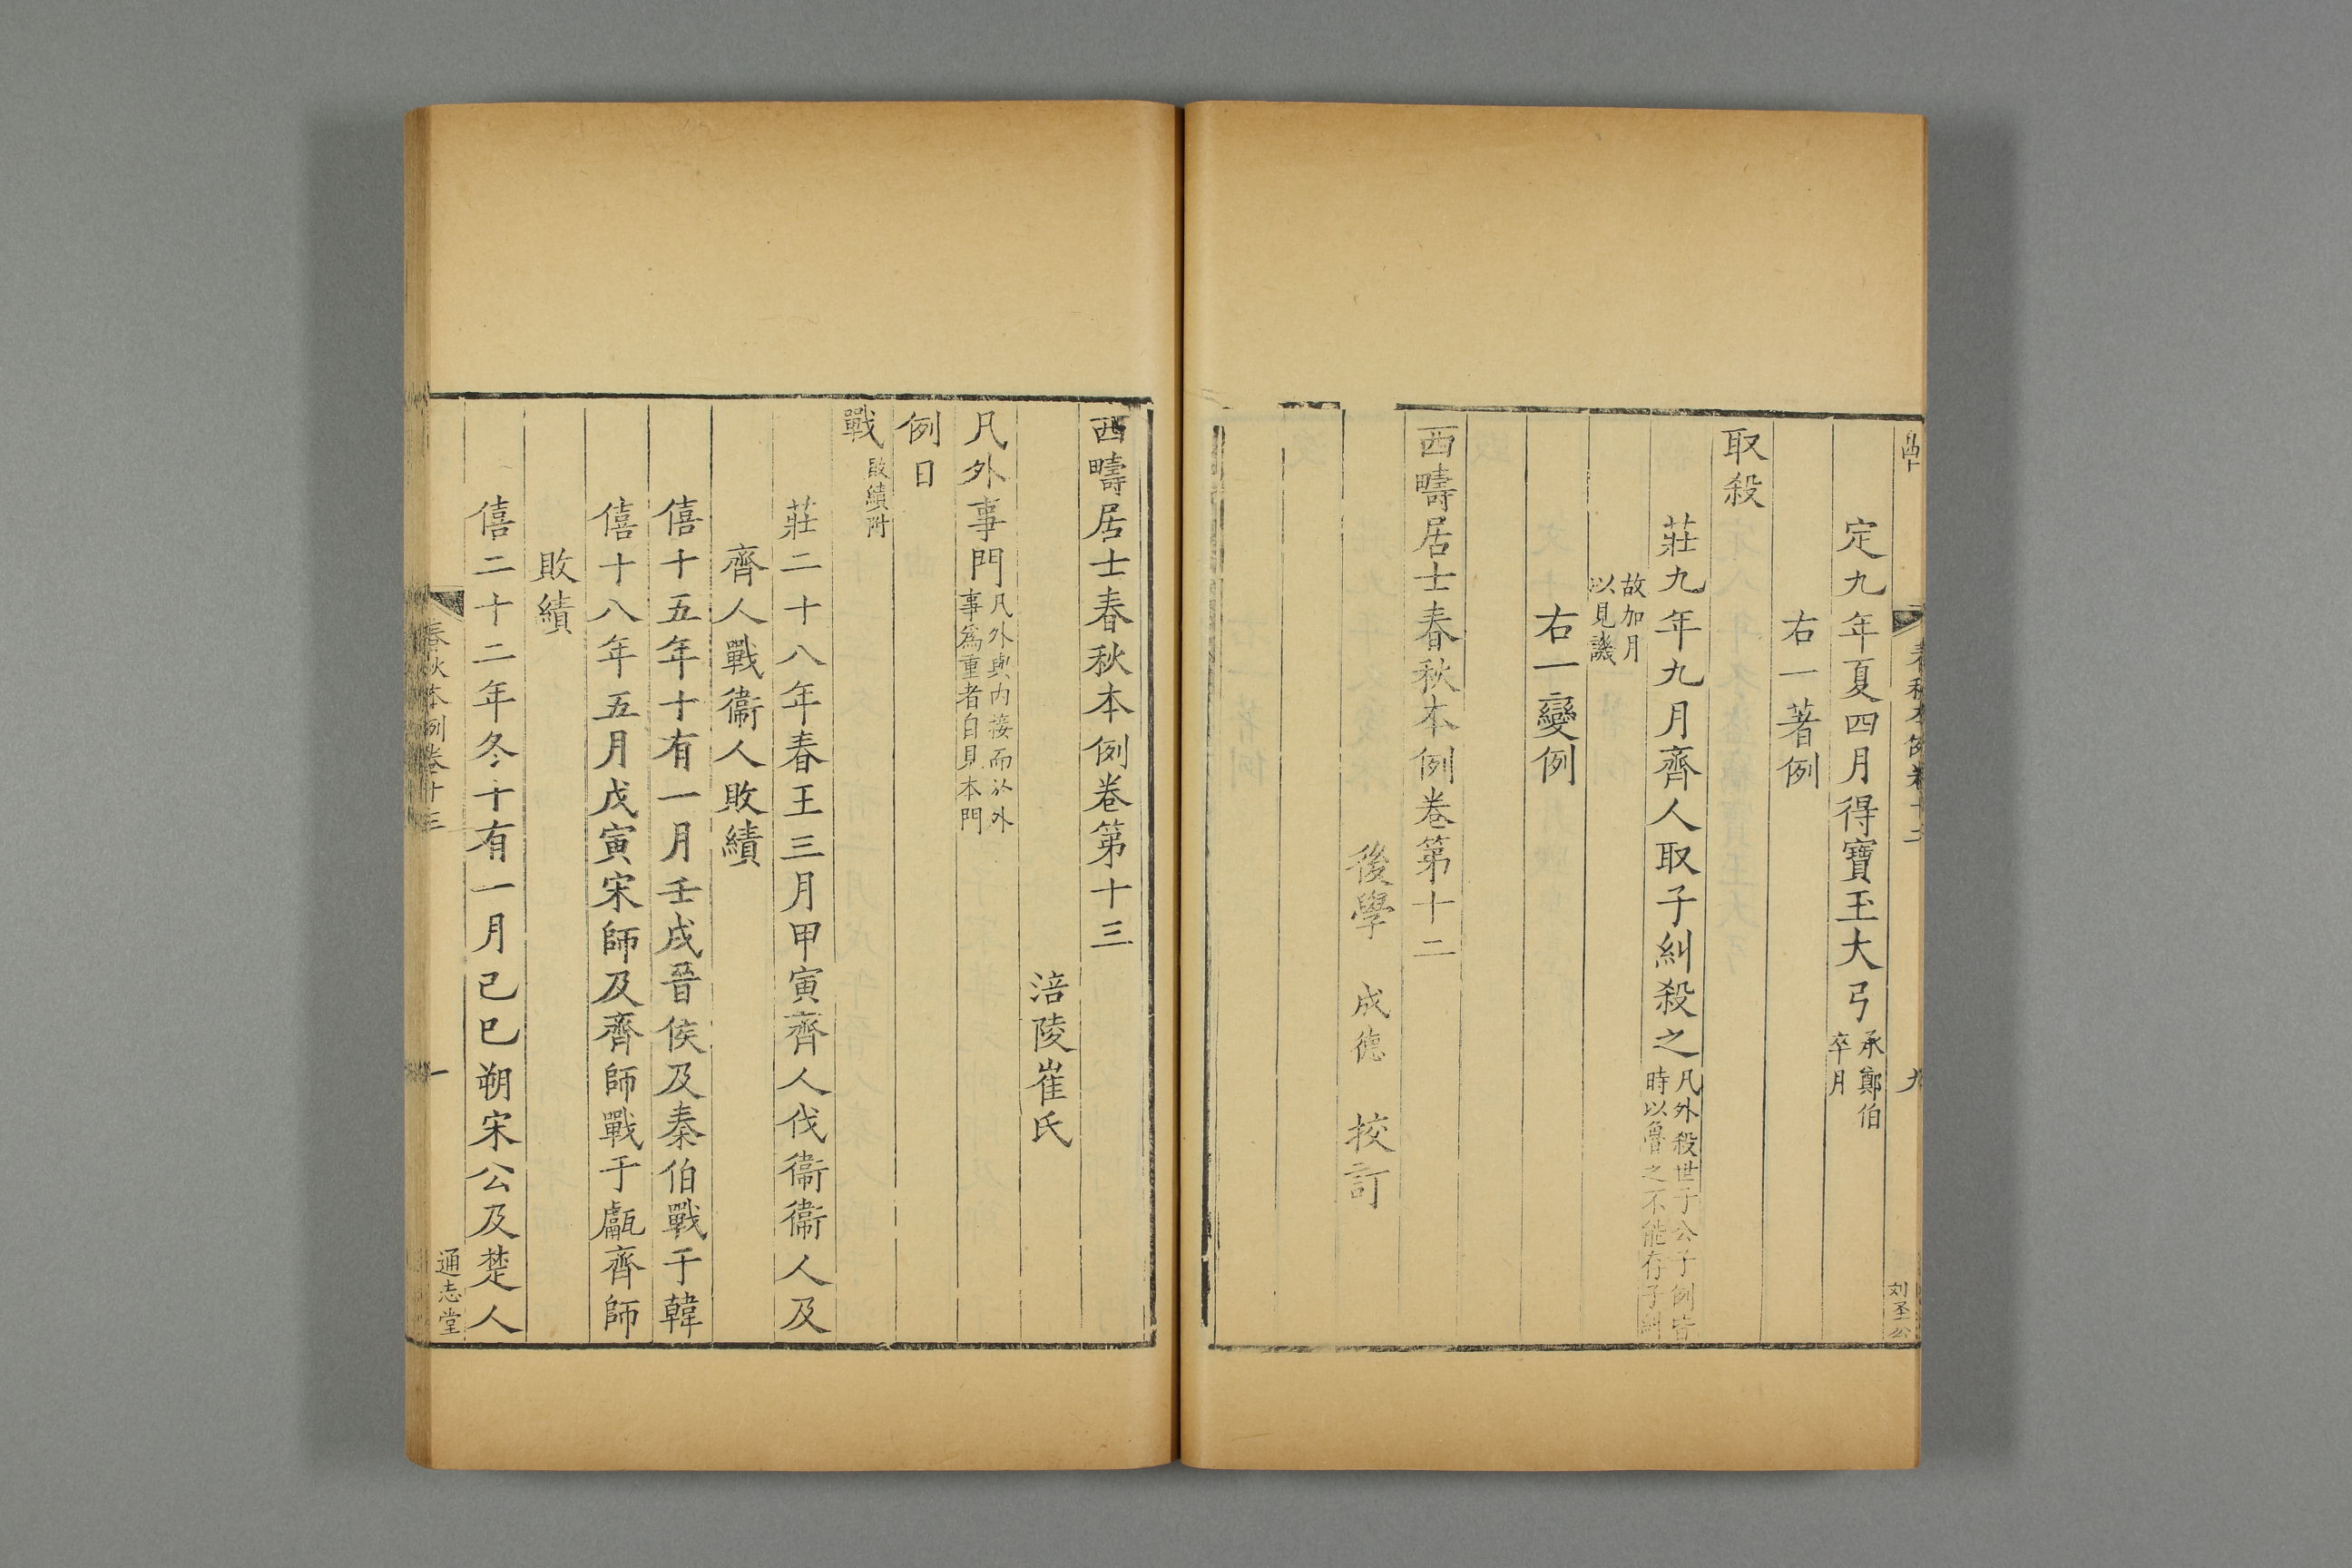 定九年夏四月得寶玉大弓承鄭伯卒月
右一著例
取殺
莊九年九月齊人取子糾殺之凡外殺世子公子例皆時以魯之不能存子糾
故加月以見譏
右一變例
西疇居士春秋本例卷第十二
後學 成德 挍訂
西疇居士春秋本例卷第十三
涪陵崔氏
凡外事門凡外與內接而以外事爲重者自見本門
例日
戰敗績附
莊二十八年春王三月甲寅齊人伐衞衞人及
齊人戰衞人敗績
僖十五年十有一月壬戌晉侯及秦伯戰于韓
僖十八年五月戊寅宋師及齊師戰于甗齊師
敗績
僖二十二年冬十有一月己巳朔宋公及楚人
春秋本例卷十三
一
通志堂